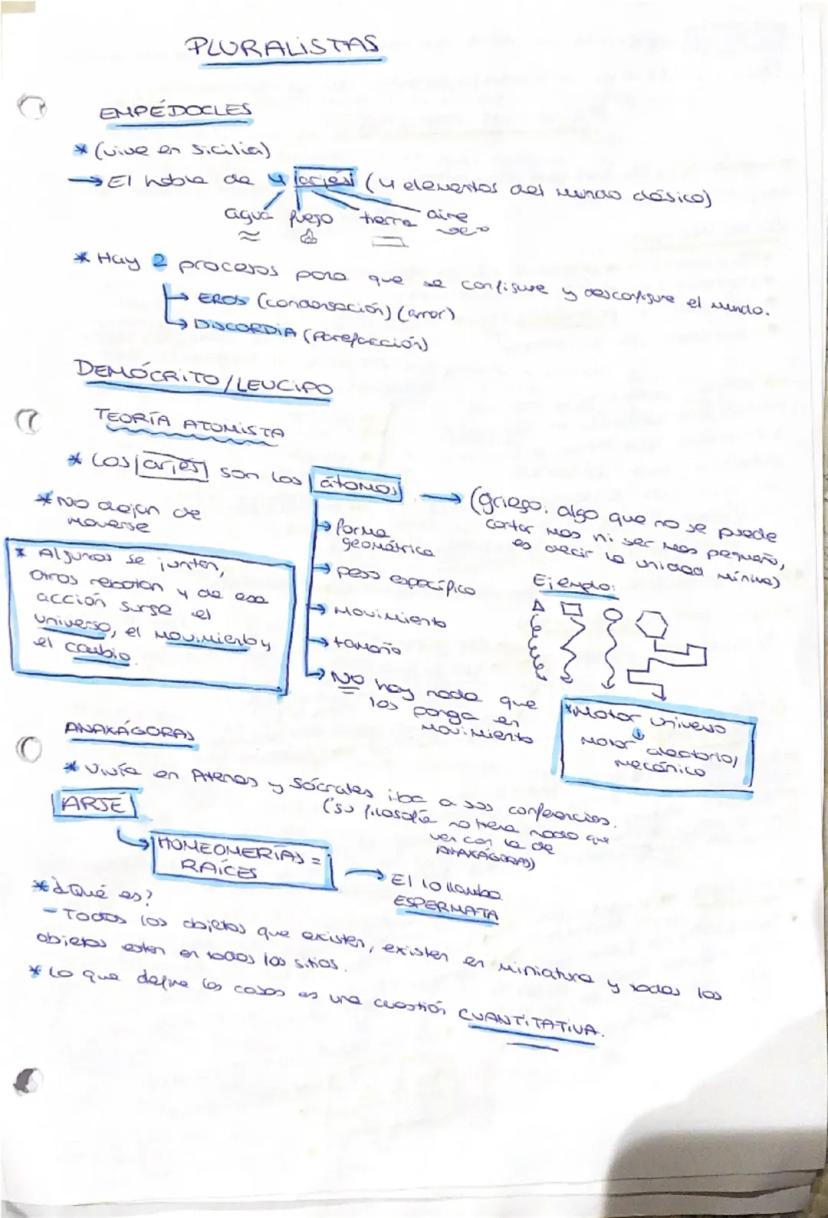 PLURALISTAS
EMPÉDOCLES
* (vive en Sicilia)
→ El habla de 4 arjés (4 elementos del mundo clásico)
agua fuego tierra aire
* Hay 2 procesos para que se configure y desconfigure el mundo.
→ EROS (condensación) (amor)
→ DISCORDIA (rarefacción)
DEMÓCRITO/LEUCIPO
TEORÍA ATOMISTA
* Los arjés son los átomos → (griego: algo que no se puede
cortar mas ni ser mas pequeño,
es decir la unidad mínima)
* No dejan de
moverse
* Algunos se juntan,
otros rebotan y de esa
acción surge el
universo, el movimiento y
el cambio.
→ forma
geométrica
→ peso específico
→ movimiento
→ tamaño
→ NO hay nada que
los ponga en
movimiento
Ejemplo:
* Motor universo
↓
Motor aleatorio/
mecánico
ANAXÁGORAS
* Vivía en Atenas y Sócrates iba a sus conferencias.
(su filosofía no tiene nada que
ver con la de
ANAXÁGORAS)
ARJÉ
→ HOMEOMERÍAS =
RAÍCES
→ El lo llamba
ESPERMATA
* ¿Qué es?
- Todos los objetos que existen, existen en miniatura y todos los
objetos estan en todos los sitios.
* Lo que define las cosas es una cuestión CUANTITATIVA.